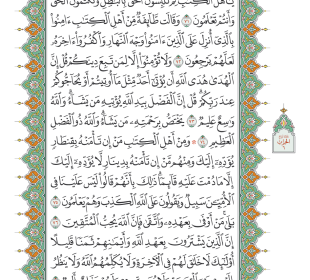 يَٰٓأَهۡلَ ٱلۡكِتَٰبِ لِمَ تَلۡبِسُونَ ٱلۡحَقَّ بِٱلۡبَٰطِلِ وَتَكۡتُمُونَ ٱلۡحَقَّ
وَأَنتُمۡ تَعۡلَمُونَ ٧١ وَقَالَت طَّآئِفَةٞ مِّنۡ أَهۡلِ ٱلۡكِتَٰبِ ءَامِنُواْ
بِٱلَّذِيٓ أُنزِلَ عَلَى ٱلَّذِينَ ءَامَنُواْ وَجۡهَ ٱلنَّهَارِ وَٱكۡفُرُوٓاْ ءَاخِرَهُۥ
لَعَلَّهُمۡ يَرۡجِعُونَ ٧٢ وَلَا تُؤۡمِنُوٓاْ إِلَّا لِمَن تَبِعَ دِينَكُمۡ قُلۡ إِنَّ
ٱلۡهُدَىٰ هُدَى ٱللَّهِ أَن يُؤۡتَىٰٓ أَحَدٞ مِّثۡلَ مَآ أُوتِيتُمۡ أَوۡ يُحَآجُّوكُمۡ
عِندَ رَبِّكُمۡۗ قُلۡ إِنَّ ٱلۡفَضۡلَ بِيَدِ ٱللَّهِ يُؤۡتِيهِ مَن يَشَآءُۗ وَٱللَّهُ
وَٰسِعٌ عَلِيمٞ ٧٣ يَخۡتَصُّ بِرَحۡمَتِهِۦ مَن يَشَآءُۗ وَٱللَّهُ ذُو ٱلۡفَضۡلِ
ٱلۡعَظِيمِ ٧٤ وَمِنۡ أَهۡلِ ٱلۡكِتَٰبِ مَنۡ إِن تَأۡمَنۡهُ بِقِنطَارٖ
يُؤَدِّهِۦٓ إِلَيۡكَ وَمِنۡهُم مَّنۡ إِن تَأۡمَنۡهُ بِدِينَارٖ لَّا يُؤَدِّهِۦٓ إِلَيۡكَ
إِلَّا مَا دُمۡتَ عَلَيۡهِ قَآئِمٗاۗ ذَٰلِكَ بِأَنَّهُمۡ قَالُواْ لَيۡسَ عَلَيۡنَا فِي
ٱلۡأُمِّيِّـۧنَ سَبِيلٞ وَيَقُولُونَ عَلَى ٱللَّهِ ٱلۡكَذِبَ وَهُمۡ يَعۡلَمُونَ ٧٥
بَلَىٰۚ مَنۡ أَوۡفَىٰ بِعَهۡدِهِۦ وَٱتَّقَىٰ فَإِنَّ ٱللَّهَ يُحِبُّ ٱلۡمُتَّقِينَ ٧٦
إِنَّ ٱلَّذِينَ يَشۡتَرُونَ بِعَهۡدِ ٱللَّهِ وَأَيۡمَٰنِهِمۡ ثَمَنٗا قَلِيلًا
أُوْلَٰٓئِكَ لَا خَلَٰقَ لَهُمۡ فِي ٱلۡأٓخِرَةِ وَلَا يُكَلِّمُهُمُ ٱللَّهُ وَلَا يَنظُرُ